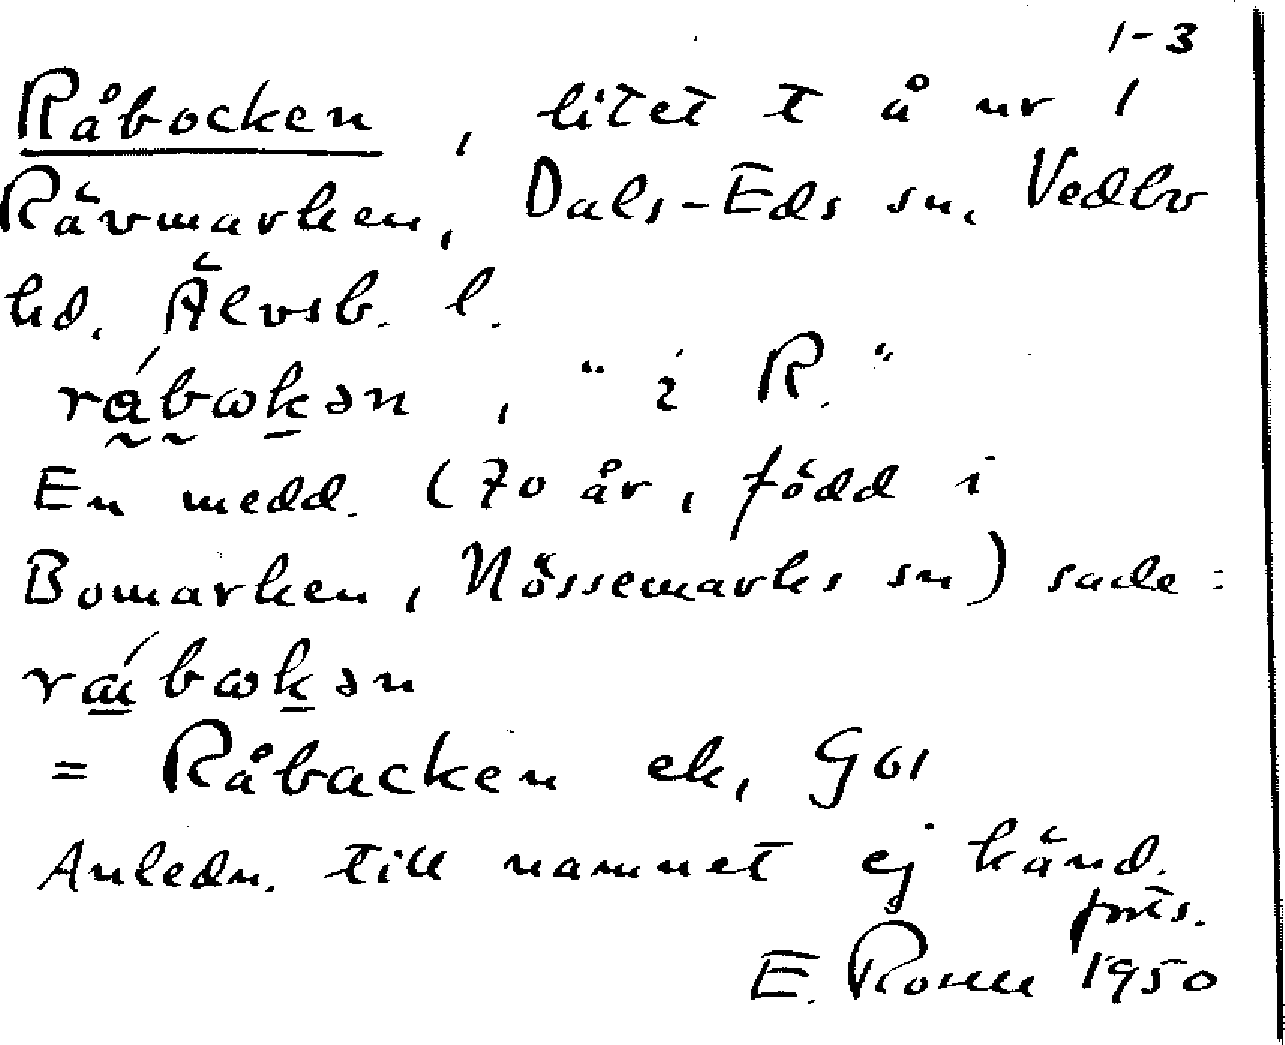 1-3
Råbocken, litet t å nr 1
Rävmarken, Dals-Eds sn, Vedbo
hd. Älvsb. l.
rábωkən, "i R."
En medd. (70 år, född i
Bomarken, Nössemarks sn) sade:
rǽbωkən
= Råbacken ek,
Anledn. till namnet ej känd.
forts.
E. 1950